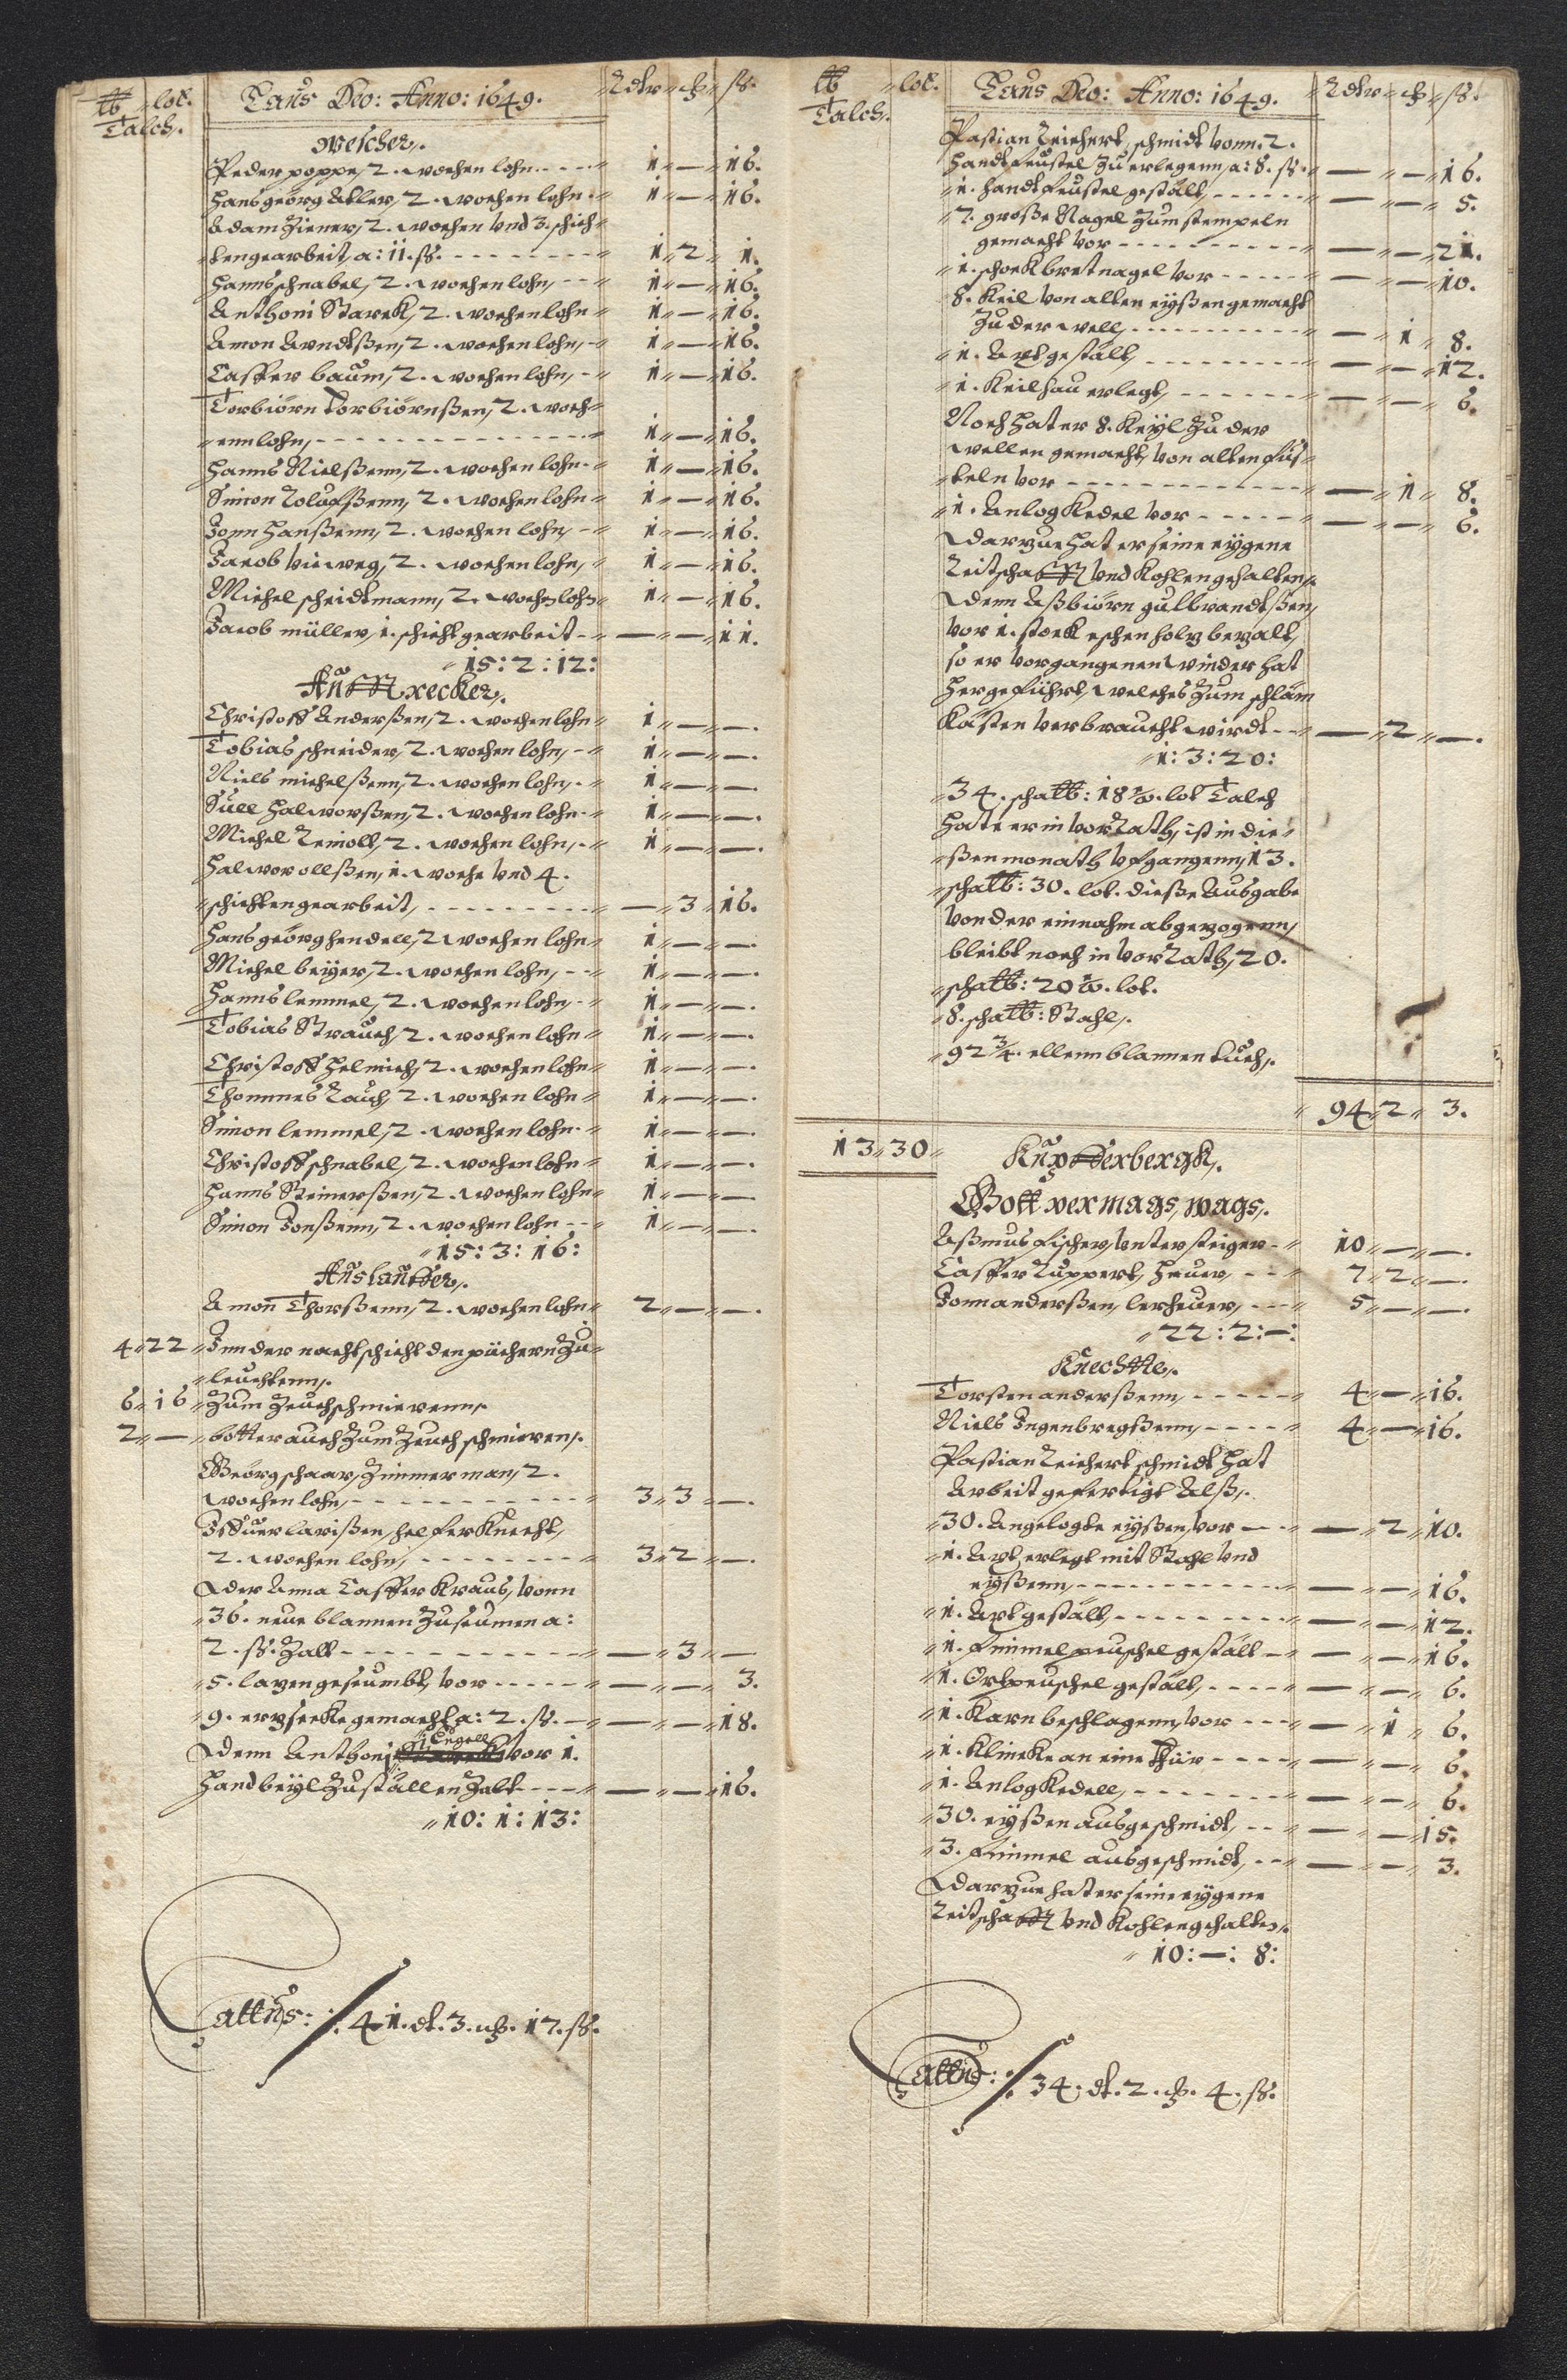 ℔ lot. Laus Deo: Anno: 1649. Rdtr ß.
Talch.
Wescher.
Peder poppe, 2. wochen lohn 1 — 16.
Hans georg Adler, 2. wochen lohn 1 — 16.
Adam Ziener, 2. wochen Vnd 3. schich
ten gearbeit, a: 11. ß. 1 2 1.
Hanns schnabel, 2. wochen lohn, 1 — 16.
Anthoni Starck, 2. wochen lohn 1 — 16.
Amon Arndtßen, 2. wochen lohn, 1 — 16.
Casper baum, 2. wochen lohn, 1 — 16.
Torbiörn Torbiörnßen, 2. woch
enn lohn, 1 — 16.
Hanns Nielßenn, 2. wochen lohn 1 — 16.
Simon Roluffßenn, 2. wochen lohn 1 — 16.
Jonn Hanßenn, 2. wochen lohn, 1 — 16.
Jacob vieweg, 2. wochen lohn, 1 — 16.
Michel scheidtmann, 2. wochen lohn 1 — 16.
Jacob müller, 1. schicht gearbeit — — 11.
15: 2: 12:
Außstrecker.
Christoff Anderßen, 2. wochen lohn 1 — —.
Tobias schneider, 2. wochen lohn, 1 — —.
Niels michelßenn, 2. wochen lohn, 1 — —.
Sull Halvorßen, 2. wochen lohn 1 — —.
Michel Reinolt, 2. wochen lohn, 1 — —.
Halvor ollßen, 1. woche Vnd 4.
schichten gearbeit, — 3 16.
Hans georg hendell, 2 wochen lohn 1 — —.
Michel beyer, 2. wochen lohn, 1 — —.
Hanns lemmel, 2. wochen lohn, 1 — —.
Tobias Strauch, 2. wochen lohn 1 — —.
Christoff Helmich, 2. wochen lohn 1 — —.
Thommes Rauch, 2. wochen lohn 1 — —.
Simon lemmel, 2. wochen lohn 1 — —.
Christoff schnabel, 2. wochen lohn 1 — —.
Hanns Steinerßen, 2. wochen lohn 1 — —.
Simon Jonßenn, 2. wochen lohn 1 — —.
15: 3: 16:
Außlauffer.
Amon Thorßenn, 2. wochen lohn 2 — —.
4 22 Inn der nachtschicht den püchern zu
leuchtenn,
6 16 Zum Zeuch schmierenn,
2 — botter auch Zum Zeuch schmieren,
Georg schaar, Zimmerman, 2.
wochen lohn, 3 3 —.
larißen, helffer Knecht,
2. wochen lohn, 3 2 —.
Der Anna Casper Kraus, vonn
36. neue blannen Zu seumen a:
2. ß. Zalt — 3 —
5. laven geseumbt, vor — — 3.
9. ertzsecke gemacht a: 2. ß. — — 18.
Engell
Denn Anthoni vor 1.
Handbeyl Zu ställen Zalt — — 16.
10: 1: 13:
Lattus: 41. dt. 3. 17. ß.

℔ lot. Laus Deo: Anno: 1649. Rdtr ß.
Talch.
Pastian Reichert, schmidt vonn 2.
Handtfeustel Zu erlegenn, a: 8. ß. — — 16.
1. handtfeustel gestält, — — 5.
7. große Nagel Zum stempeln
gemacht vor — — 21.
1. schock bret nagel vor — — 10.
8. Keil von alten eyßen gemacht
Zu der well, — 1 8.
1. Axt gestält, — — 12.
1. Keilhau erlegt, — — 6.
Noch Hat er 8. Keyl Zu der
wellen gemacht, von alten feus
teln vor — 1 8.
1. Anlog Kedel vor — — 6.
Darzue Hat er seine eygene
Reitschafft Vnd Kohlen gehalten,
Denn Aßbiörn gulbrandtßen,
vor 1. stock eschen holtz bezalt,
so er vorgangenen winder hat
hergeführt, welches Zum schläm
Kasten verbraucht wirdt — 2 —.
1: 3: 20:
34. scha℔: 18 ½. lot Talch
Hate er in vorrath, ist in die
ßen monath vfgangenn, 13.
scha℔: 30. lot. dieße Ausgabe
von der einnahm abgezogenn,
bleibt noch in vorrath, 20.
scha℔: 20 ½. lot.
8. scha℔: Stahl,
92 ¾. ellenn blannen tuch,
94 2 3.
13 30 Kupfferbergk.
Gott vermags, wags.
Aßmus fischer, Vntersteiger 10 — —.
Casper Ruppert, Heuer, 7 2 —.
Jonn anderßen, lerheuer, 5 — —.
22: 2: —:
Knechtte.
Torsten anderßenn, 4 — 16.
Niels Ingenbregßenn, 4 — 16.
Pastian Reichert schmidt Hat
Arbeit gefertigt Alß,
30. Angelogte eyßen, vor — 2 10.
1. Axt erlegt mit Stahl Vnd
eyßenn, — — 16.
1. Axt gestält, — — 12.
1. fimmelpeuschel gestält — — 16.
1. Ortpeuschel gestält, — — 6.
1. Karn beschlagenn, vor — 1 6.
1. Klincke an eine thür — — 6.
1. Anlog Kedell, — — 6.
30. eyßen ausgeschmidt, — — 15.
3. fimmel ausgeschmidt, — — 3.
Darzue hat er seine eygene
Reitschafft Vnd Kohlen gehalten.
10: —: 8:
Lattus: 34. dt. 2. 4. ß.